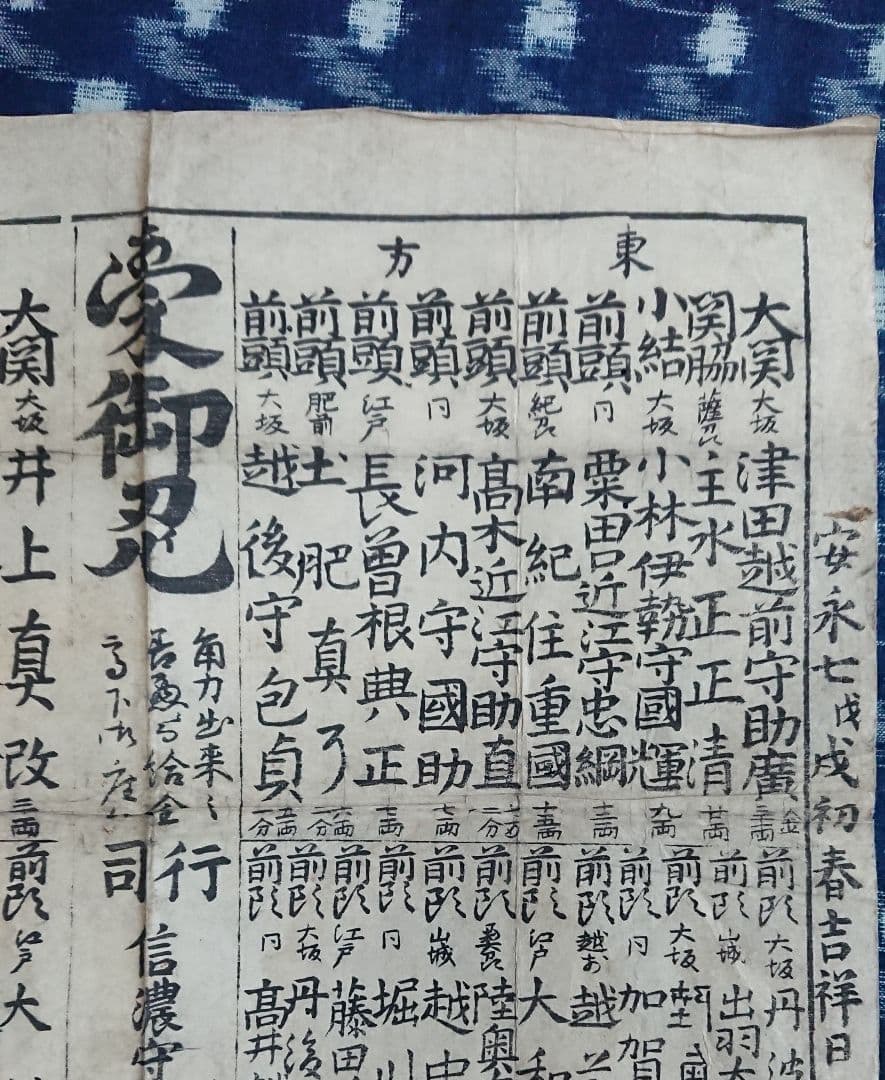 安永七戊戌初春吉祥日
東方
大関 大坂 津田越前守助廣 金
関脇 薩刕 主水正正清
小結 大坂 小林伊勢守國輝 九両
前頭 同 粟田口近江守忠綱
前頭 紀刕 南紀住重國
前頭 大坂 高木近江守助直
前頭 同 河内守國助 七両
前頭 江戸 長曽根興正
前頭 肥前 土肥真了
前頭 大坂 越後守包貞 五両二分
前頭 大坂 丹波
前頭 山城 出羽大
前頭 大坂
前頭 同 加賀
前頭 越前 越前
前頭 江戸 大和
前頭 陸奥
前頭 山城 越中
前頭 同 堀川
前頭 江戸 藤田
前頭 大坂 丹後
前頭 同 高井
蒙御免
角力出来
高下御座
行司
信濃守
大関 大坂 井上真改 三両
前頭 江戸 大